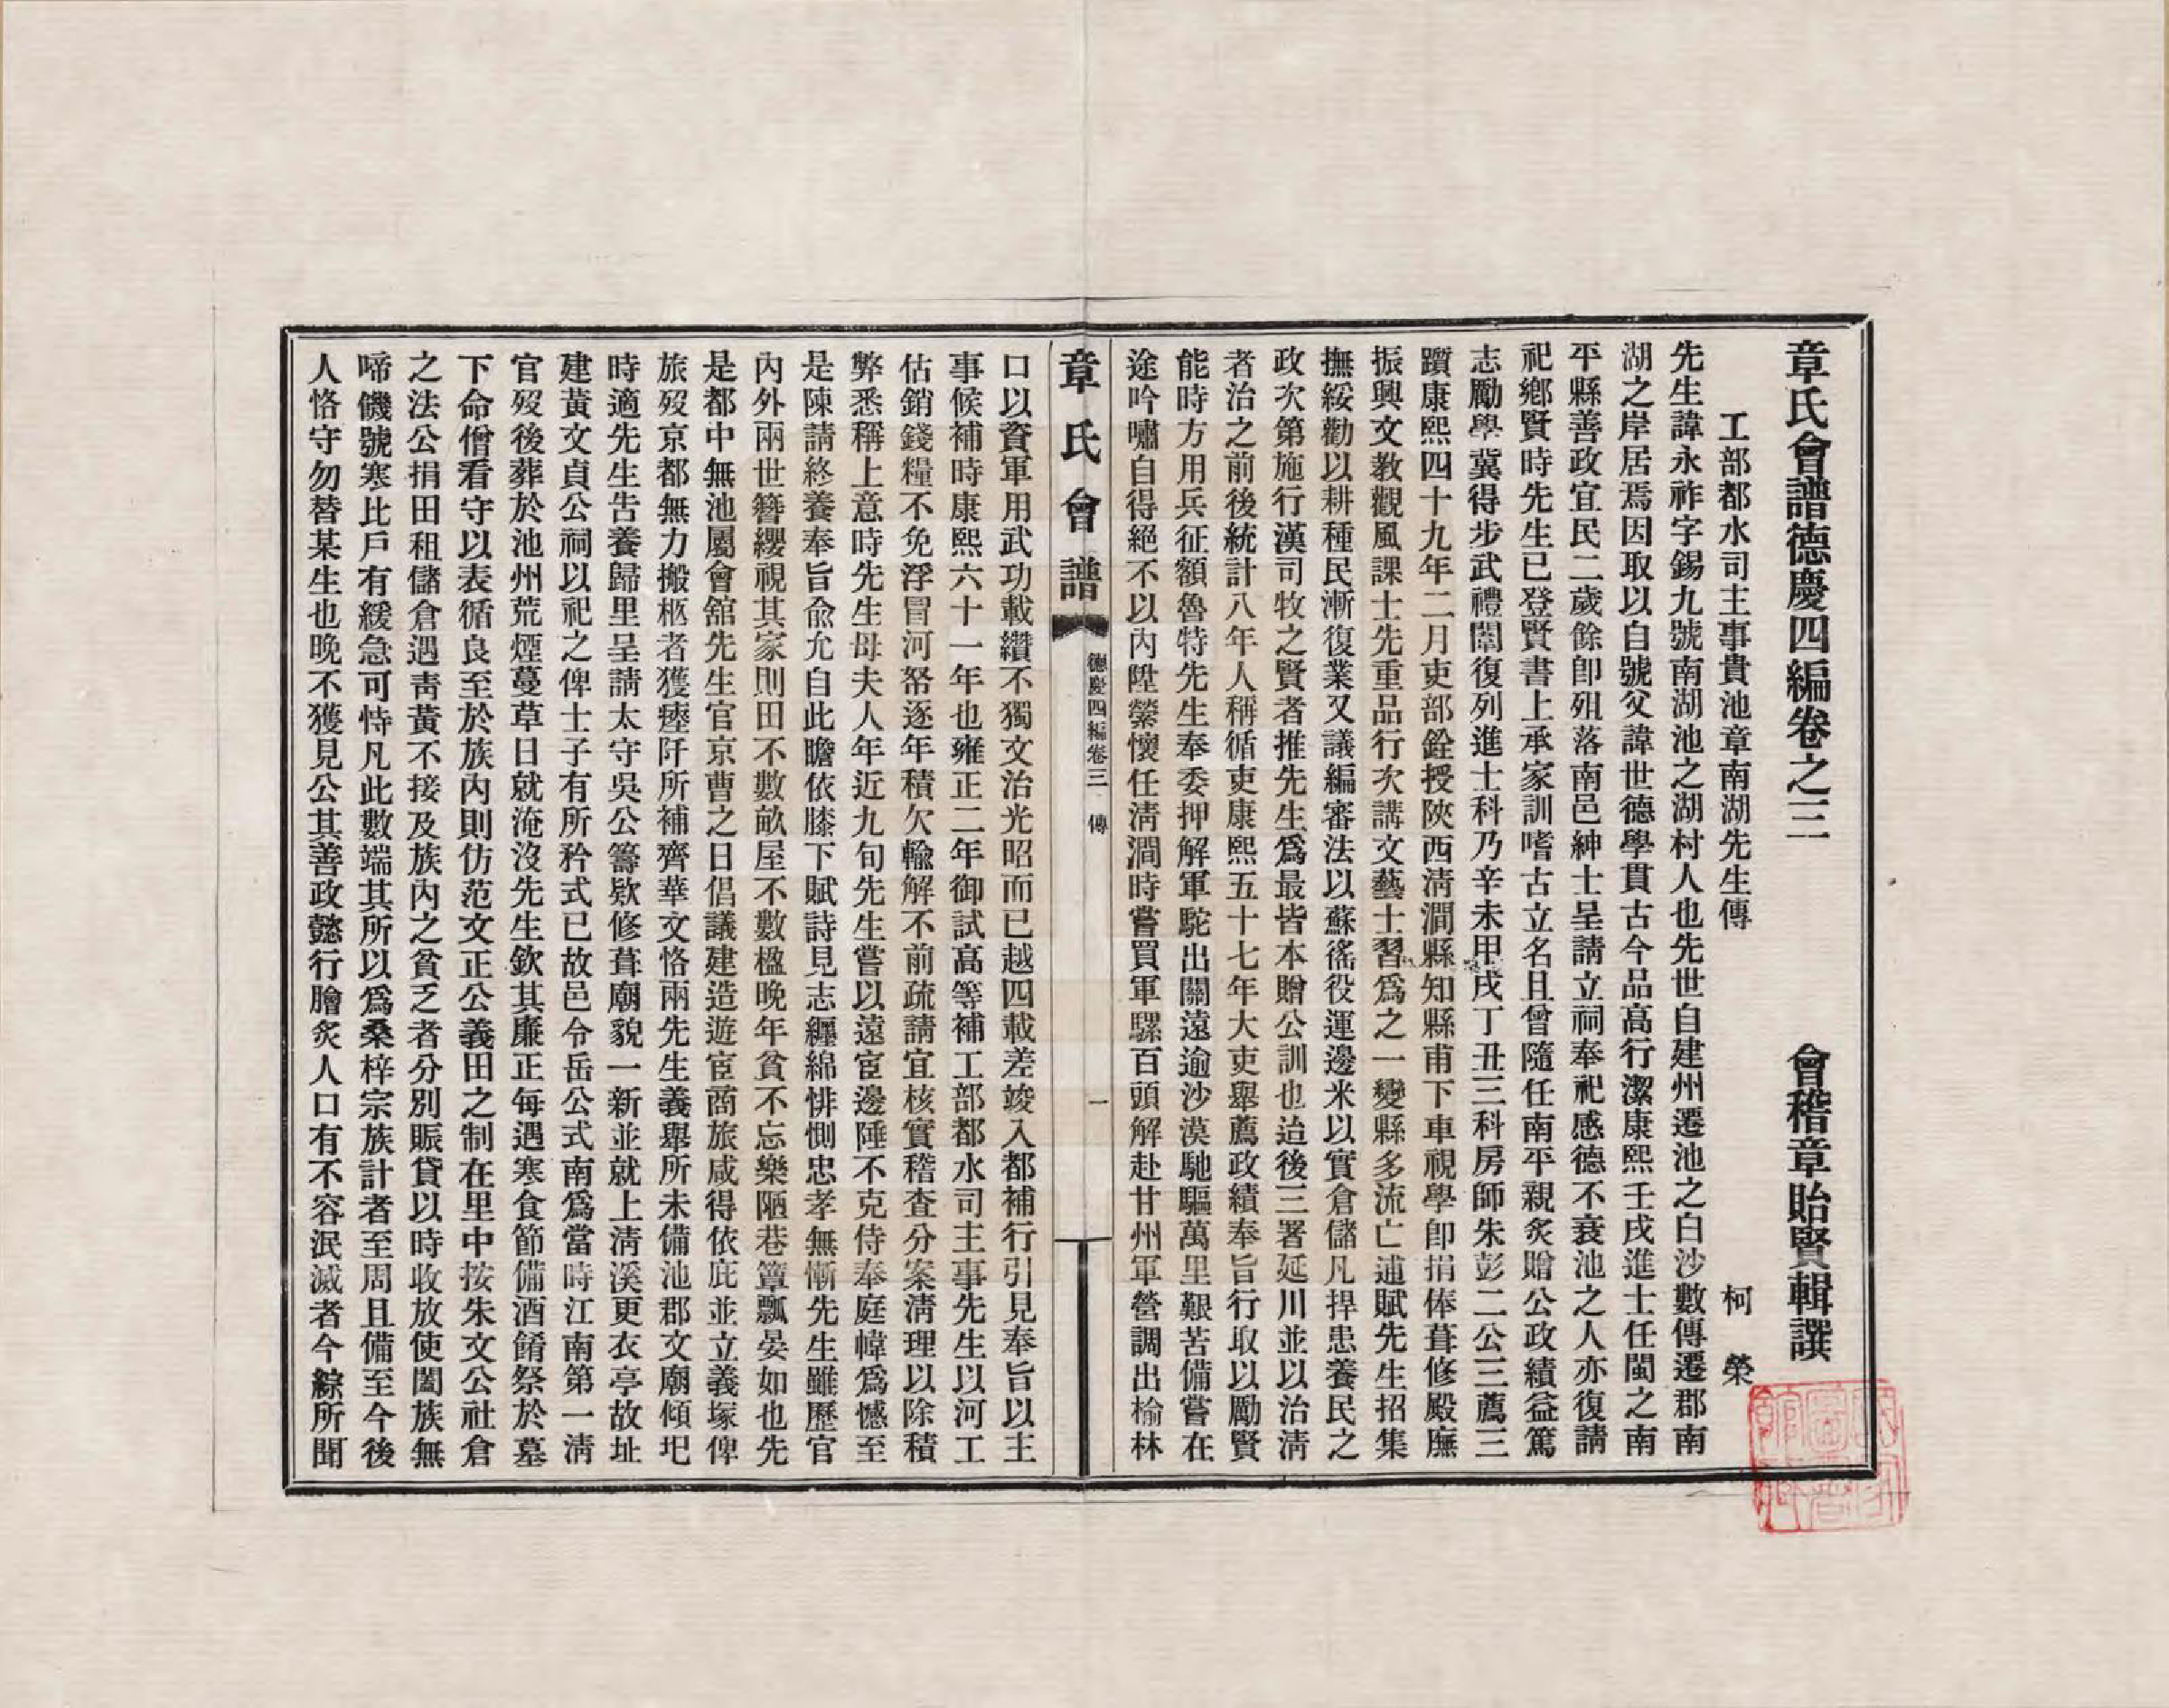 章氏會譜德慶四編卷之三　會稽章貽賢輯譔
工部都水司主事貴池章南湖先生傳　柯榮
先生諱永祚字錫九號南湖池之湖村人也先世自建州遷池之白沙數傳遷郡南
湖之岸居焉因取以自號父諱世德學貫古今品高行潔康熙壬戌進士任閩之南
平縣善政宜民二歲餘卽殂落南邑紳士呈請立祠奉祀感德不衰池之人亦復請
祀鄉賢時先生已登賢書上承家訓嗜古立名且曾隨任南平親炙贈公政績益篤
志勵學冀得步武禮闈復列進士科乃辛未甲戌丁丑三科房師朱彭二公三薦三
躓康熙四十九年二月吏部銓授陝西淸澗縣知縣甫下車視學卽捐俸葺修殿廡
振興文教觀風課士先重品行次講文藝士習爲之一變縣多流亡逋賦先生招集
撫綏勸以耕種民漸復業又議編審法以蘇徭役運邊米以實倉儲凡捍患養民之
政次第施行漢司牧之賢者推先生爲最皆本贈公訓也迨後三署延川並以治淸
者治之前後統計八年人稱循吏康熙五十七年大吏舉薦政績奉旨行取以勵賢
能時方用兵征額魯特先生奉委押解軍駝出關遠逾沙漠馳驅萬里艱苦備嘗在
途吟嘯自得絕不以內陞縈懷任淸澗時嘗買軍騾百頭解赴甘州軍營調出榆林
章氏會譜　德慶四編卷三　傳　一
口以資軍用武功載纘不獨文治光昭而已越四載差竣入都補行引見奉旨以主
事候補時康熙六十一年也雍正二年御試高等補工部都水司主事先生以河工
估銷錢糧不免浮冒河帑逐年積欠輸解不前疏請宜核實稽查分案淸理以除積
弊悉稱上意時先生母夫人年近九旬先生嘗以遠宦邊陲不克侍奉庭幃爲憾至
是陳請終養奉旨兪允自此瞻依膝下賦詩見志纏綿悱惻忠孝無慚先生雖歷官
內外兩世簪纓視其家則田不數畝屋不數楹晚年貧不忘樂陋巷簞瓢晏如也先
是都中無池屬會舘先生官京曹之日倡議建造遊宦商旅咸得依庇並立義塚俾
旅歿京都無力搬柩者獲瘞阡所補齊華文恪兩先生義舉所未備池郡文廟傾圯
時適先生告養歸里呈請太守吳公籌欵修葺廟貌一新並就上淸溪更衣亭故址
建黃文貞公祠以祀之俾士子有所矜式已故邑令岳公式南爲當時江南第一淸
官歿後葬於池州荒煙蔓草日就淹沒先生欽其廉正每遇寒食節備酒餚祭於墓
下命僧看守以表循良至於族內則仿范文正公義田之制在里中按朱文公社倉
之法公捐田租儲倉遇靑黃不接及族內之貧乏者分別賑貸以時收放使闔族無
啼饑號寒比戶有緩急可恃凡此數端其所以爲桑梓宗族計者至周且備至今後
人恪守勿替某生也晚不獲見公其善政懿行膾炙人口有不容泯滅者今綜所聞